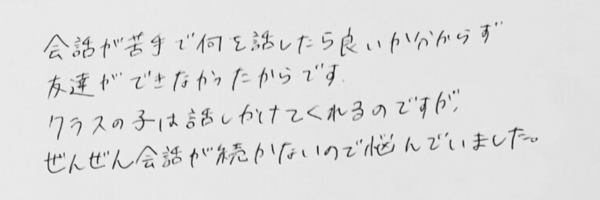 会話が苦手で何を話したら良いか分からず
友達ができなかったからです.
クラスの子は話しかけてくれるのですが,
ぜんぜん会話が続かないので悩んでいました。